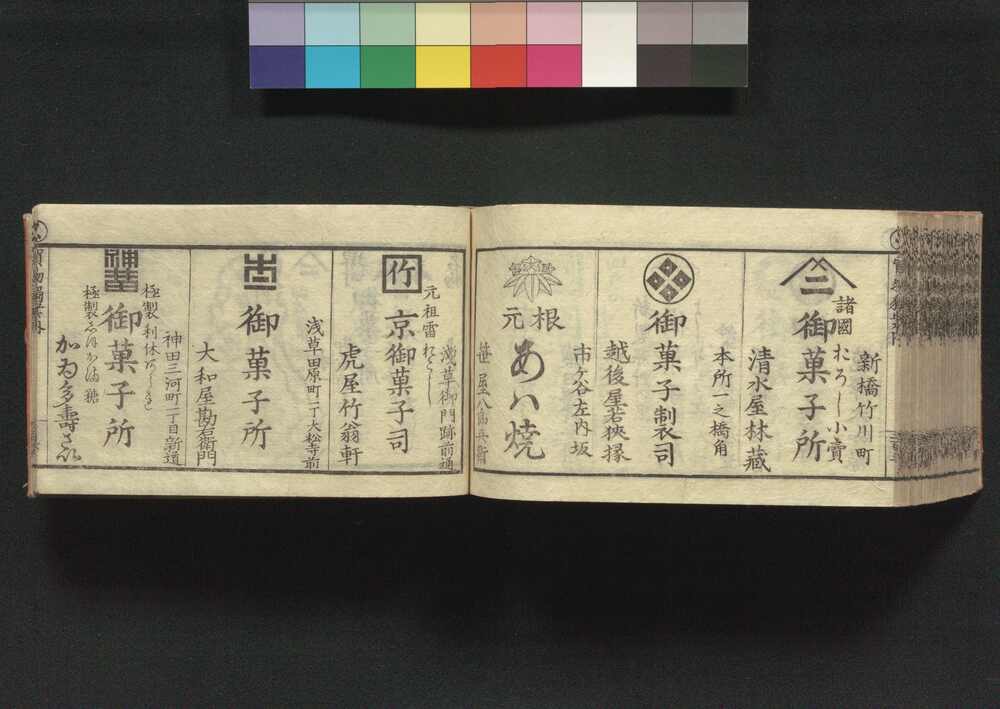 新橋竹川町
諸國おろし小賣
三
御菓子所
清水屋林藏
本所一之橋角
御菓子制裂司
市ヶ谷左内坂
越後屋若狭掾
根元
あハ焼
浅草御門跡前通
元祖雷おこし
竹
京御菓子司
虎屋竹翁軒
浅草田原町一丁大松寺前
御菓子所
大和屋勘右衛門
神田三河町二丁目新道
極製
御菓子所
極製